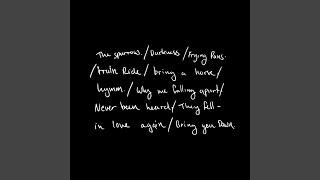 The sparrow./Darkness/Frying Pans.
/Train Ride/bring a horse/
hymn./Why me falling apart/
Never been heard/They fell-
in love again/Bring you Down.